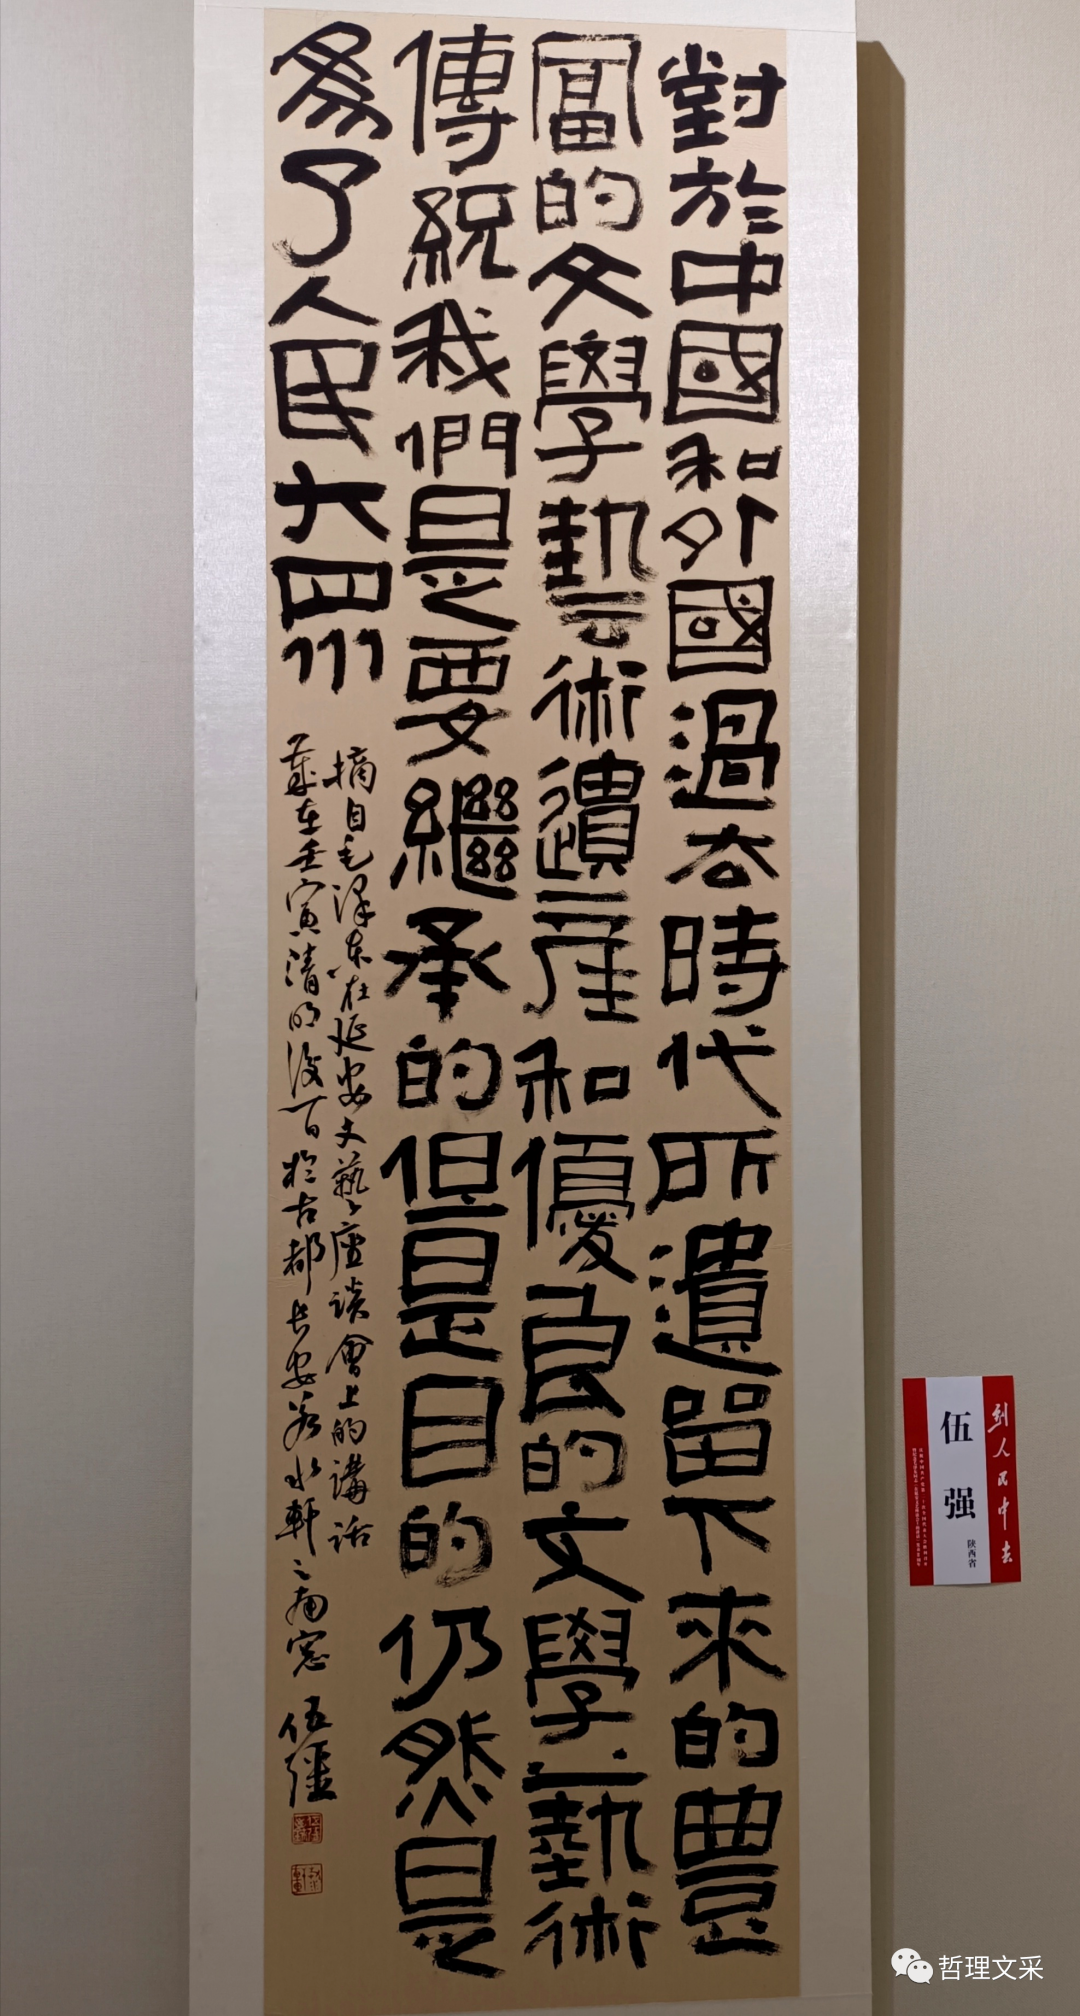 對於中國和外國過去時代所遺留下來的豐
富的文學藝術遺產和優良的文學藝術
傳統我們是要繼承的但是目的仍然是
爲了人民大眾
摘自毛澤東在延安文藝座談會上的講話
歲在壬寅清明後一日於古都長安若水軒之南窗 伍強
到人民中去
伍强
陕西省
哲理文采